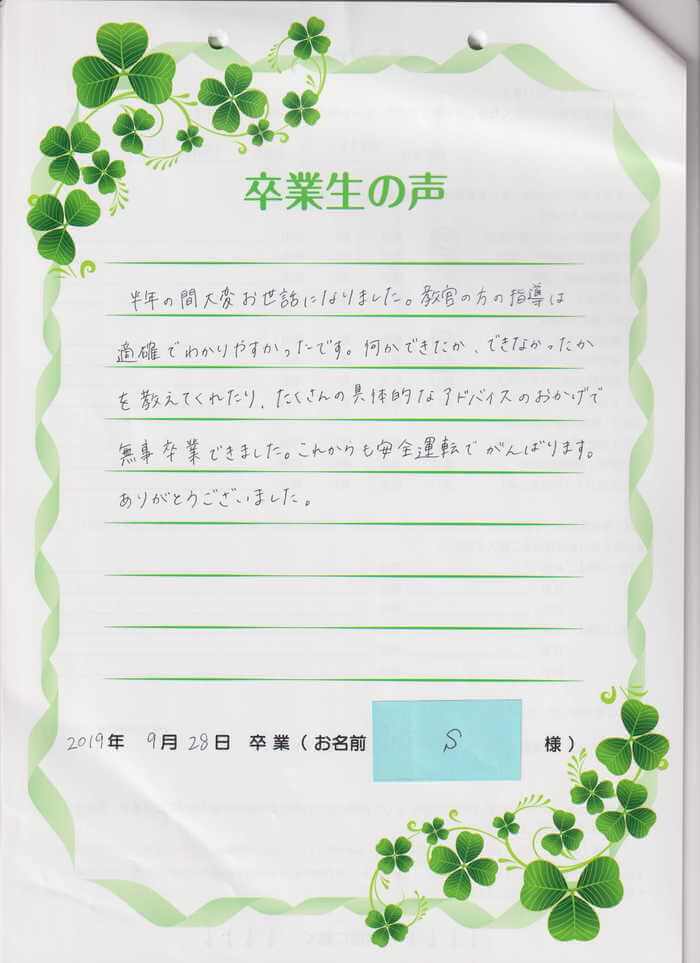 卒業生の声
半年の間大変お世話になりました。教官の方の指導は
適確でわかりやすかったです。何ができたか、できなかったか
を教えてくれたり、たくさんの具体的なアドバイスのおかげで
無事卒業できました。これからも安全運転でがんばります。
ありがとうございました。
2019年 9月 28日 卒業(お名前 S 様)